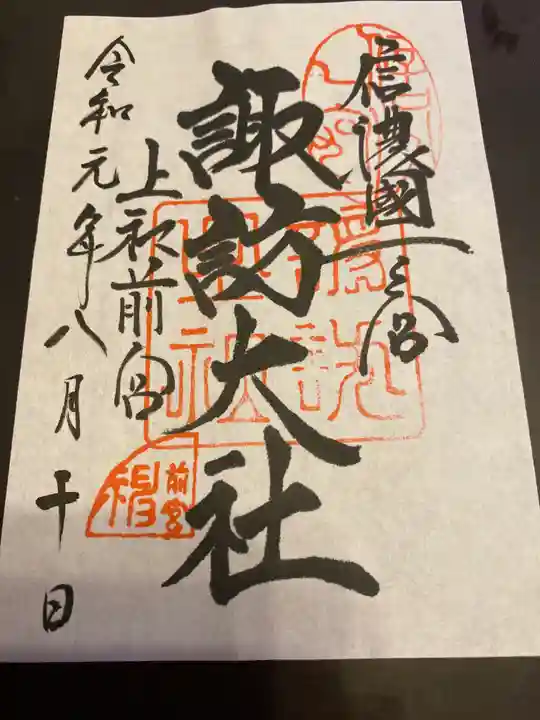 信濃國一之宮
諏訪大社
上社前宮
令和元年八月十日
前宮